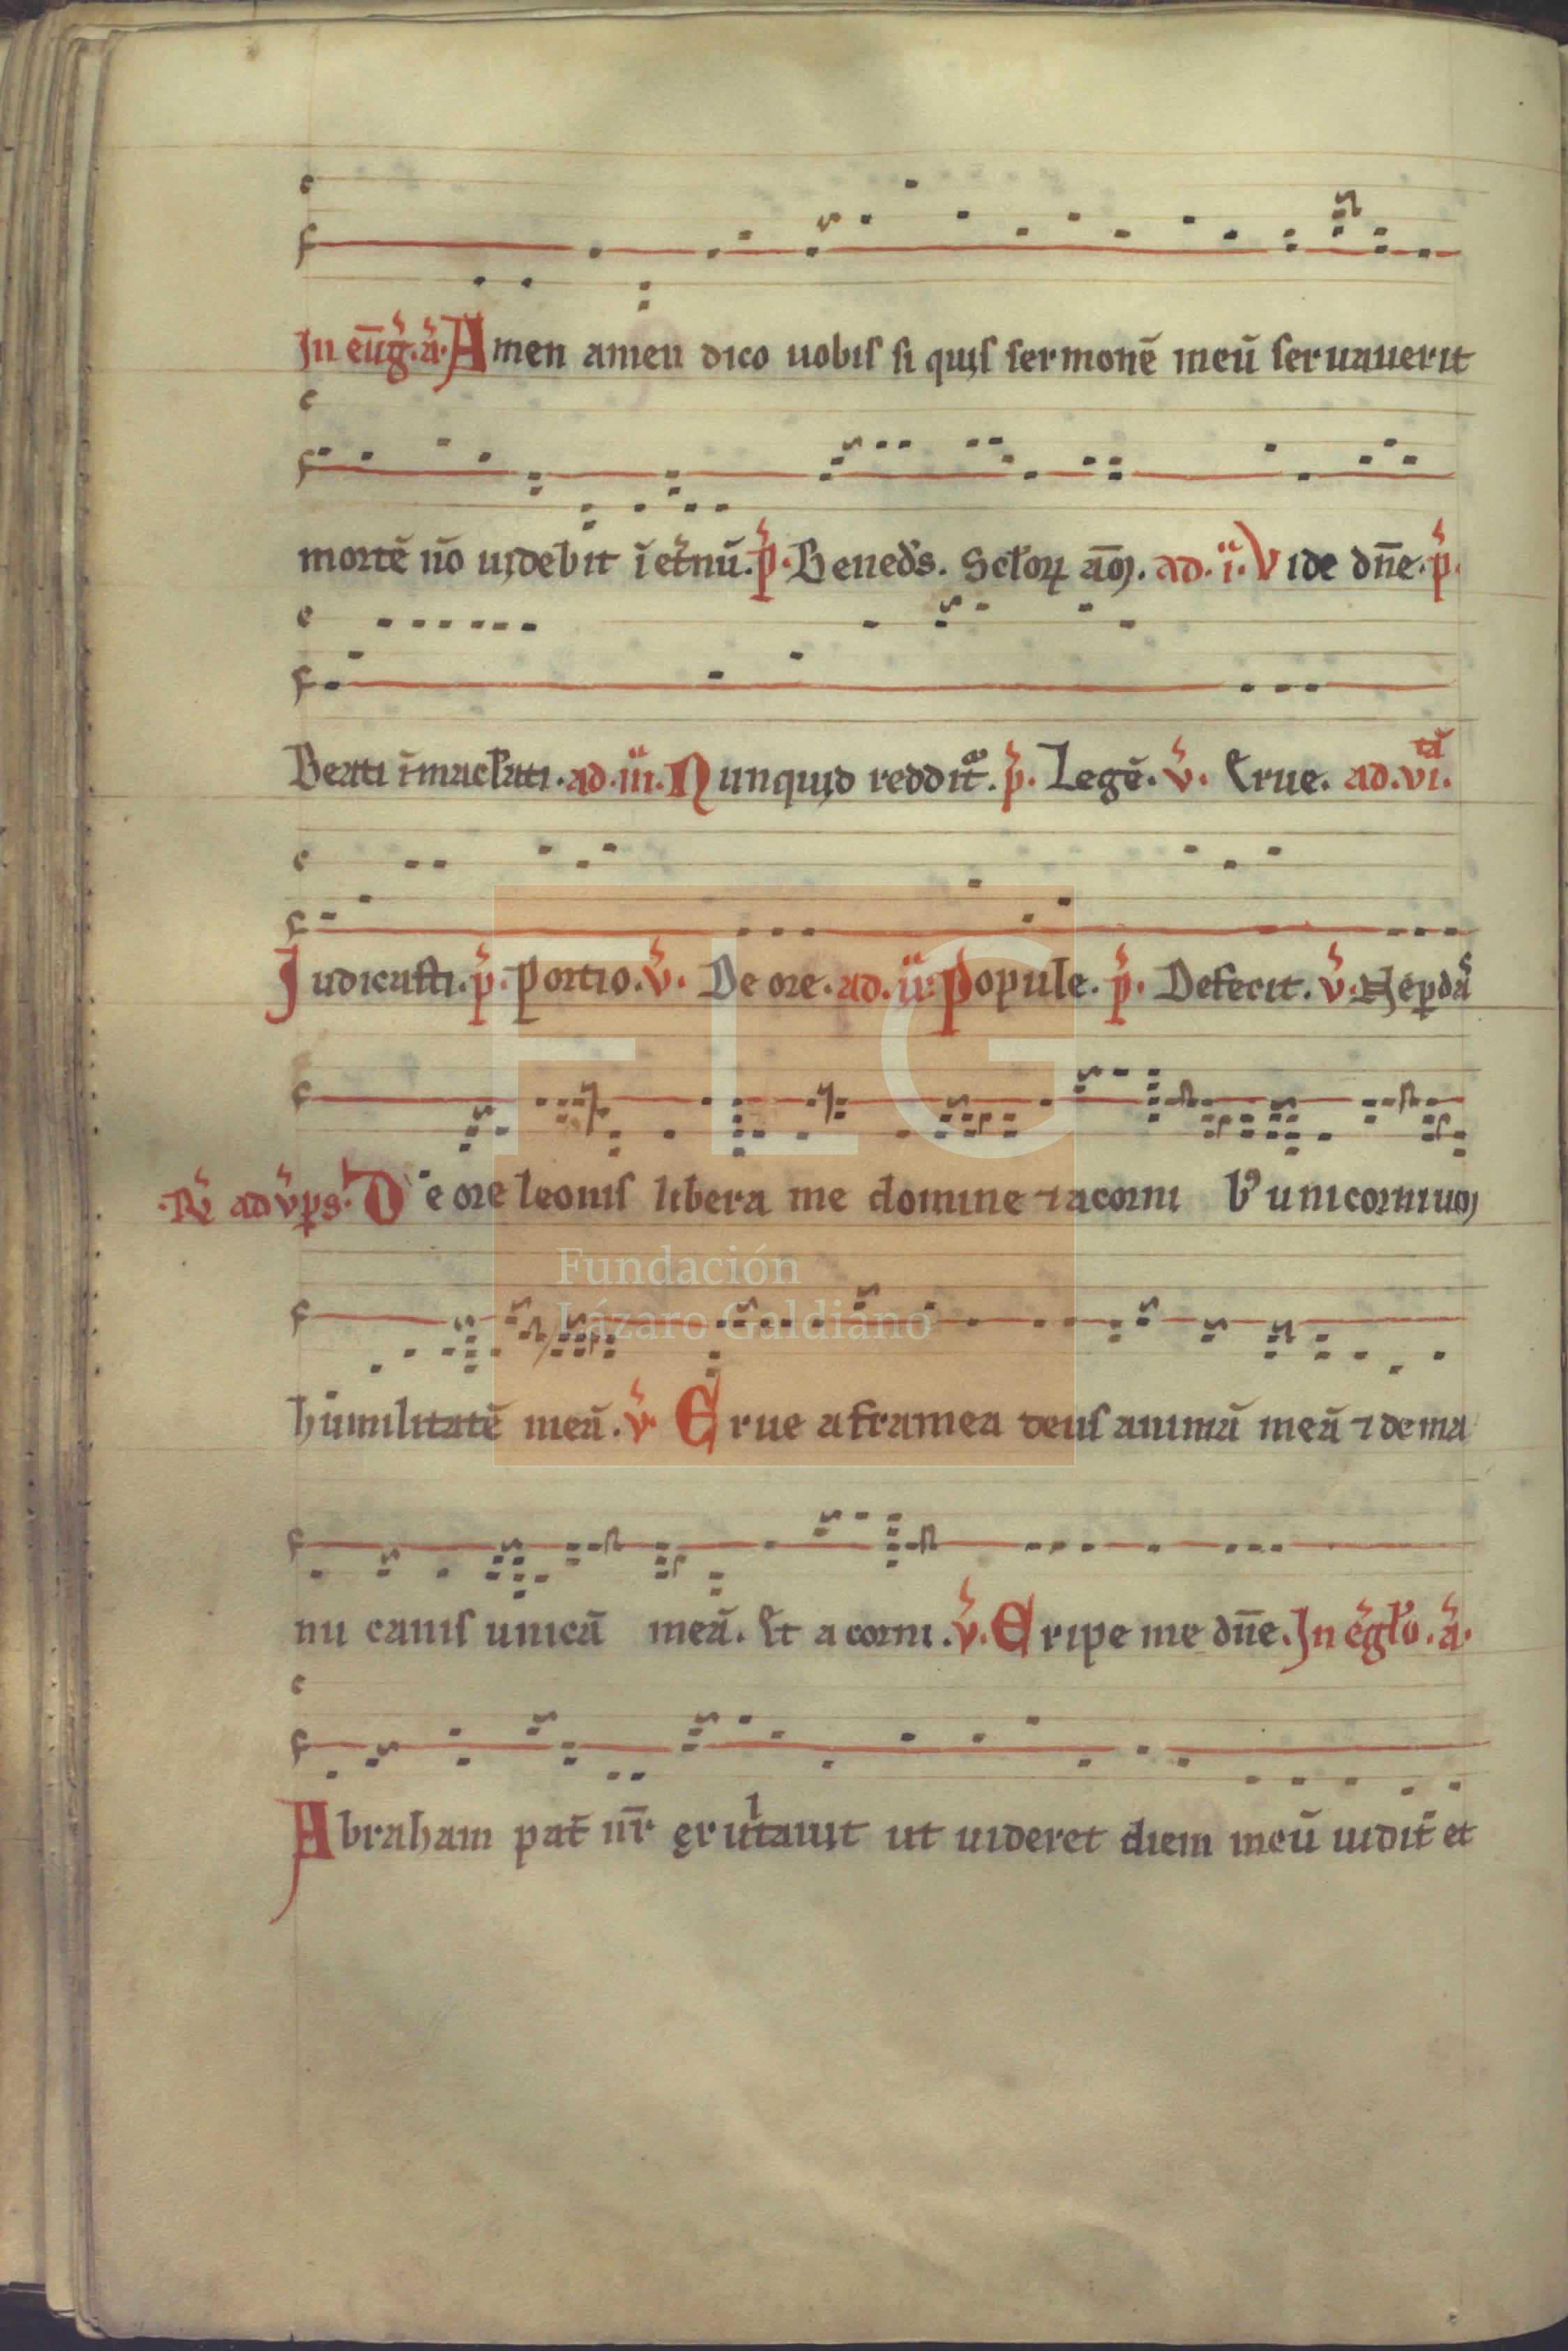 In eūg̃. ã. Amen amen dico uobis si quis sermonē meū seruauerit
mortē nō uidebit ī et̃nū. p̃. Bened̃s. Sc̃loꝝ am̄. ad. i. Vide dñe. p̃.
Beati īmacl̃ati. ad. iii. Nunquid reddit᷑. p̃. Legē. ṽ. Erue. ad. vi. tã
Iudicasti. p̃. Portio. ṽ. De ore. ad. ii. Popule. p̃. Defecit. ṽ. Ne ꝑdã
R̃ ad ṽꝑs. De ore leonis libera me domine ⁊ a corni bꝰ unicorniuꝫ
humilitatē meã. ṽ. Erue a framea deus animã meã ⁊ de ma
nu canis unicã meã. Et a corni. ṽ. Eripe me dñe. In eg̃lo. ã.
Abraham pat̃ nr̄ exultauit ut uideret diem meū uidit et
Fundación
Lázaro Galdiano
FLG